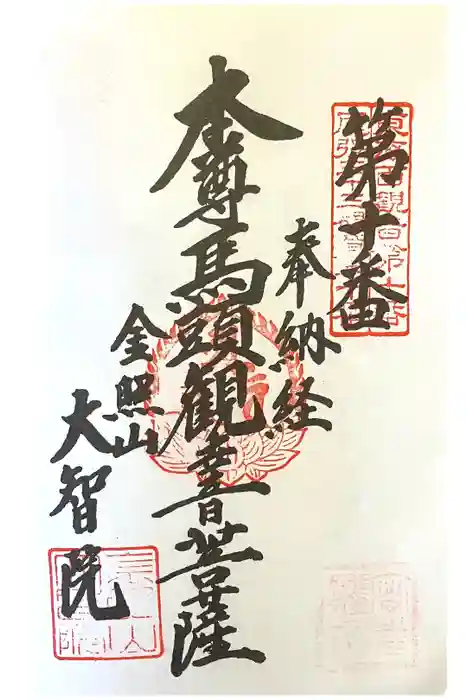 第十番
奉納経
本尊馬頭観音世菩薩
金照山
大智院